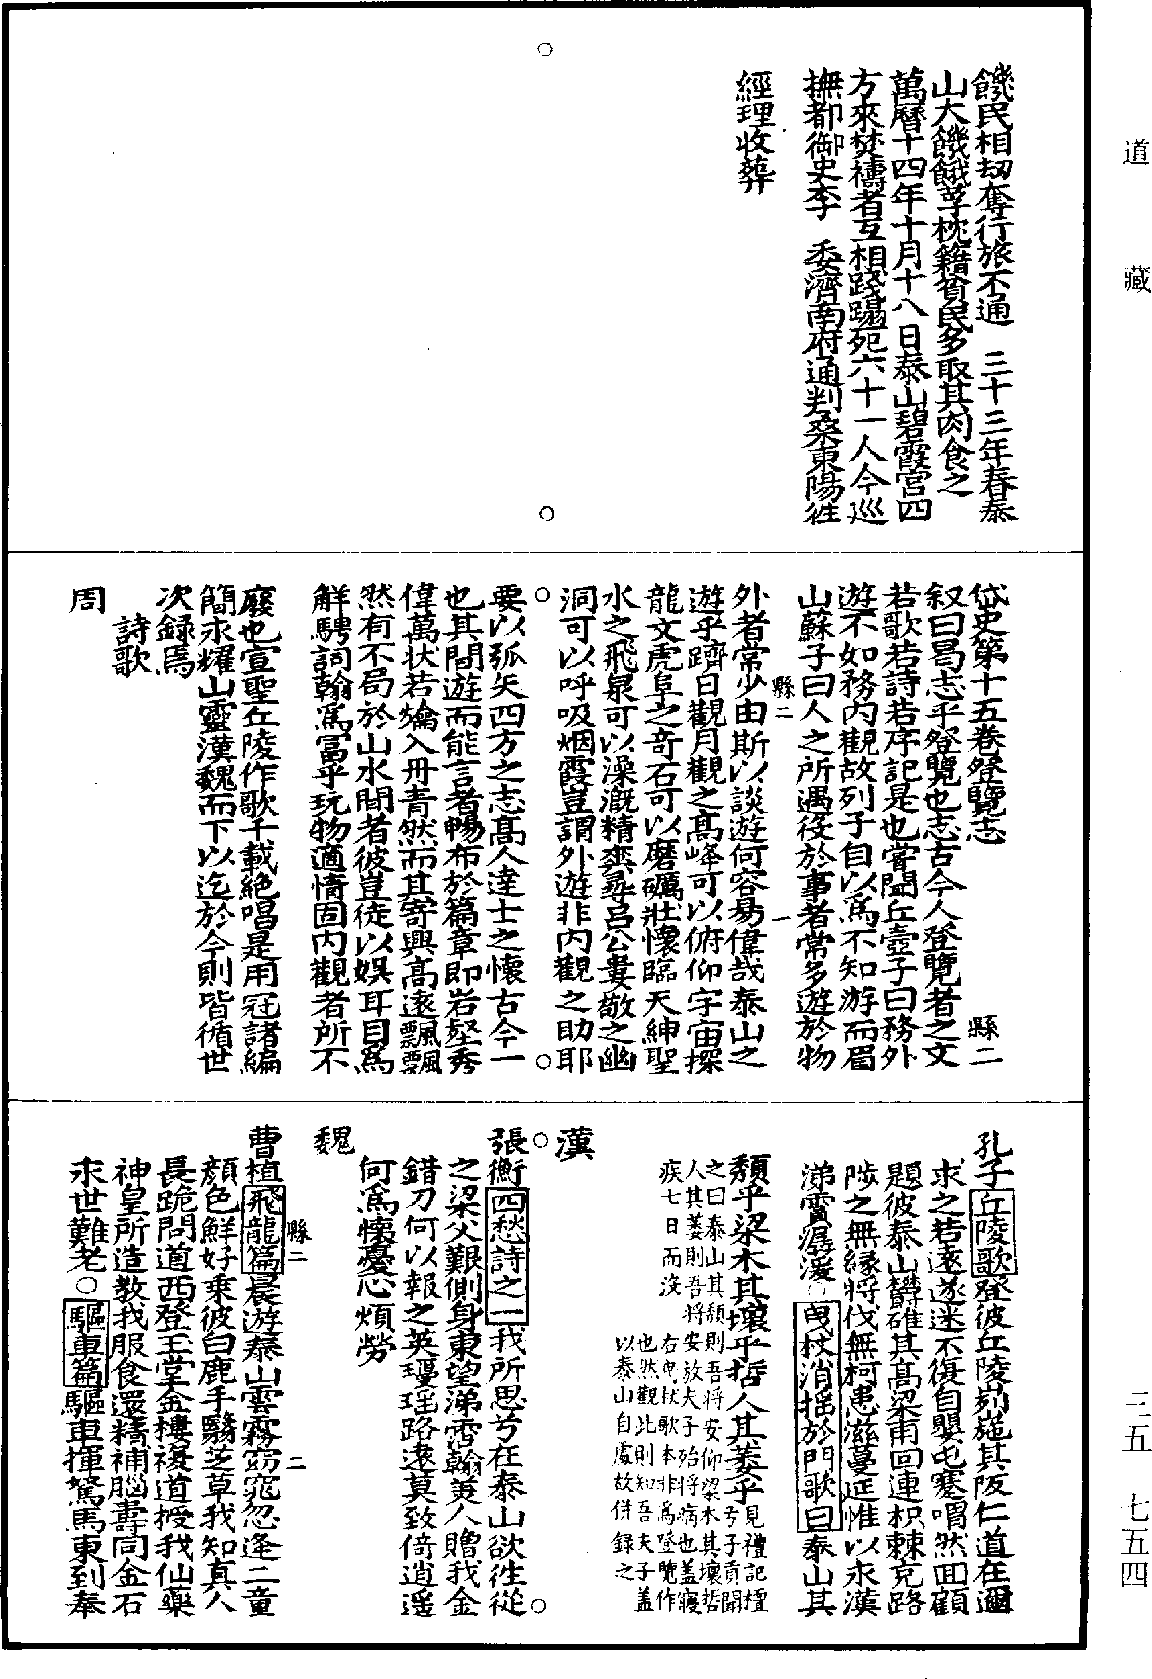 道藏
饑民相刼奪行旅不通　三十三年春泰
山大饑餓莩枕籍貧民多取其肉食之
萬曆十四年十月十八日泰山碧霞宮四
方來焚禱者互相踐蹋死六十一人今巡
撫都御史李　委濟南府通判桑東陽往
經理收葬
岱史第十五卷登覽志　縣二
叙曰曷志乎登覽也志古今人登覽者之文
若歌若詩若序記是也嘗聞丘壺子曰務外
遊不如務內觀故列子自以為不知游而眉
山蘇子曰人之所遇役於事者常多遊於物
縣二　一
外者常少由斯以談遊何容易偉哉泰山之
遊乎躋日觀月觀之高峰可以俯仰宇宙探
龍文虎阜之奇石可以磨礪壯懷臨天紳聖
水之飛泉可以澡漑精爽尋呂公婁敬之幽
洞可以呼吸烟霞豈謂外遊非內觀之助耶
要以弧矢四方之志高人達士之懷古今一
也其間遊而能言者暢布於篇章即岩壑秀
偉萬狀若爚入冊青然而其寄興高遠飄飄
然有不局於山水間者彼豈徒以娛耳目為
觧騁詞翰為富乎玩物適情固內觀者所不
廢也宣聖丘陵作歌千載絕唱是用冠諸編
簡永耀山靈漢魏而下以迄於今則皆循世
次録焉
詩歌
周
孔子丘陵歌登彼丘陵峛崺其阪仁道在邇
求之若遠遂迷不復自嬰屯蹇喟然回顧
題彼泰山欝確其高梁甫回連枳棘充路
陟之無緣將伐無柯患滋蔓延惟以永漢
涕霣潺湲○曳杖消揺於門歌曰泰山其
頹乎梁木其壞乎哲人其萎乎見禮記檀
弓子貢聞
之曰泰山其頹則吾將安仰梁木其壞哲
人其萎則吾將安放夫子殆將病也蓋寢
疾七日而沒　右曳杖歌本非為登覽作
也然觀此則知吾夫子蓋
以泰山自處故併録之
漢
張衡四愁詩之一我所思兮在泰山欲往從
之梁父艱側身東望涕霑翰美人贈我金
錯刀何以報之英瓊瑤路遠莫致倚逍遥
何為懷憂心煩勞
魏
曹植飛龍篇晨遊泰山雲霧窈窕忽逢二童
縣二　二
顔色鮮好乘彼白鹿手翳芝草我知真人
長跪問道西登玉堂金樓複道授我仙藥
神皇所造教我服食還精補腦壽同金石
永世難老○驅車篇驅車揮駑馬東到奉
三五　七五四